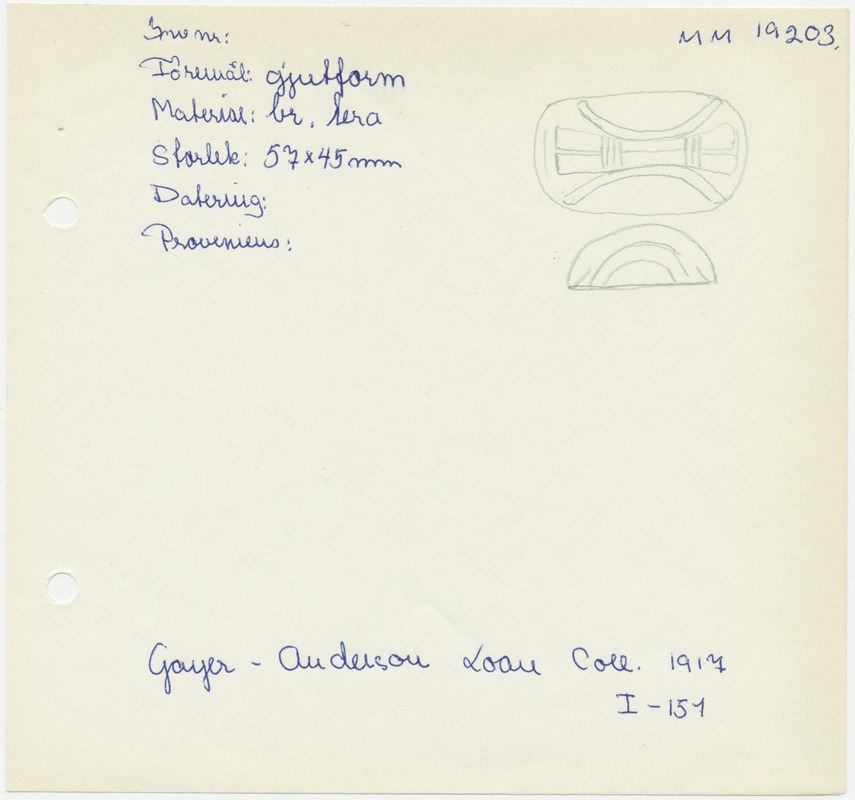 MM 19203.
Inv nr:
Föremål: gjutform
Material: br. lera
Storlek: 57x45mm
Datering:
Proveniens:
Gayer - Anderson Loan Coll. 1917
I-151